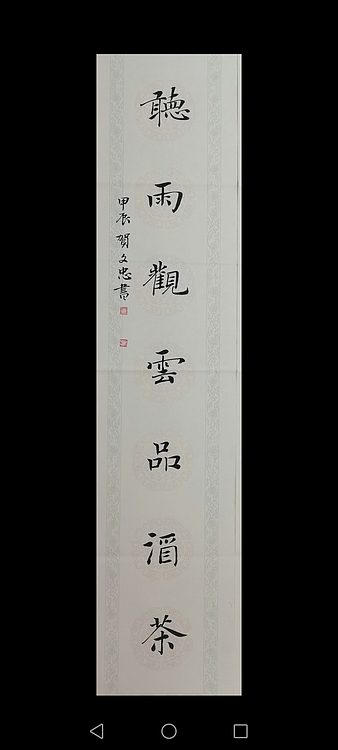 聽雨觀雲品湄茶
甲辰賀文忠書